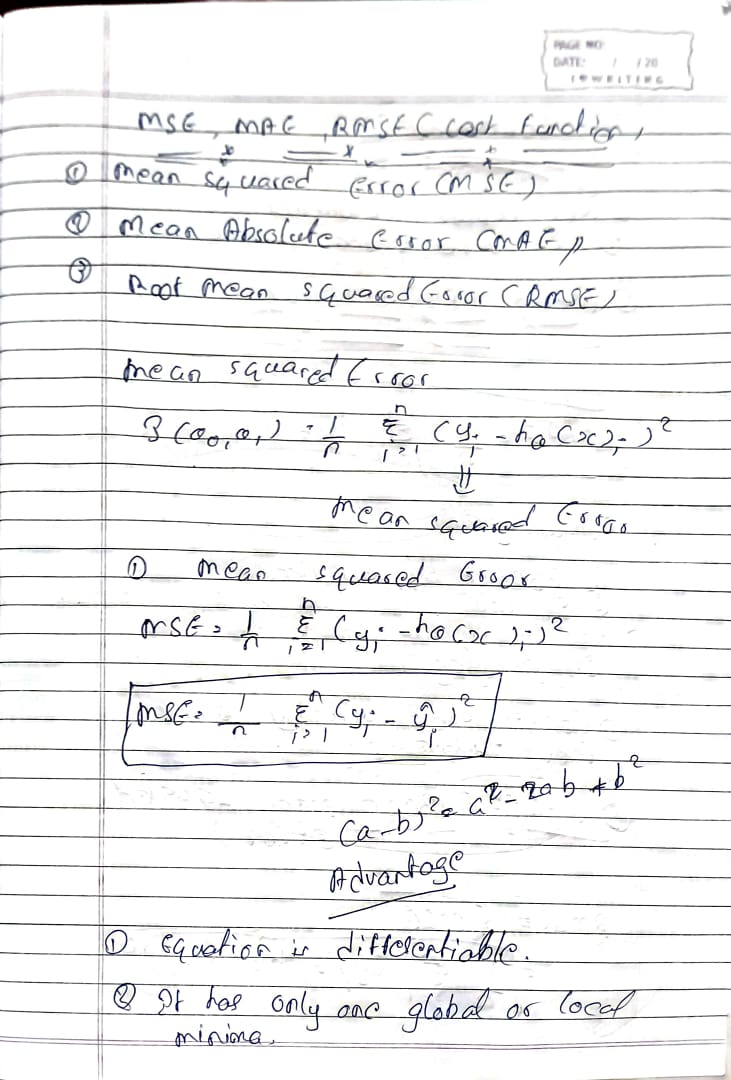 PAGE NO:
DATE: / /20
MSE, MAE, RMSE (cost function)
① Mean squared Error (MSE)
② Mean Absolute Error (MAE)
③ Root mean squared Error (RMSE)
mean squared Error
J(θ₀,θ₁) = 1/n Σⁿᵢ₌₁ (yᵢ - hθ(x)ᵢ)²
⇓
Mean squared Error
① mean squared Error
MSE = 1/n Σⁿᵢ₌₁ (yᵢ - hθ(x)ᵢ)²
MSE = 1/n Σⁿᵢ₌₁ (yᵢ - ŷᵢ)²
(a-b)² = a² - 2ab + b²
Advantage
① Equation is differentiable.
② It has only one global or local
minima.